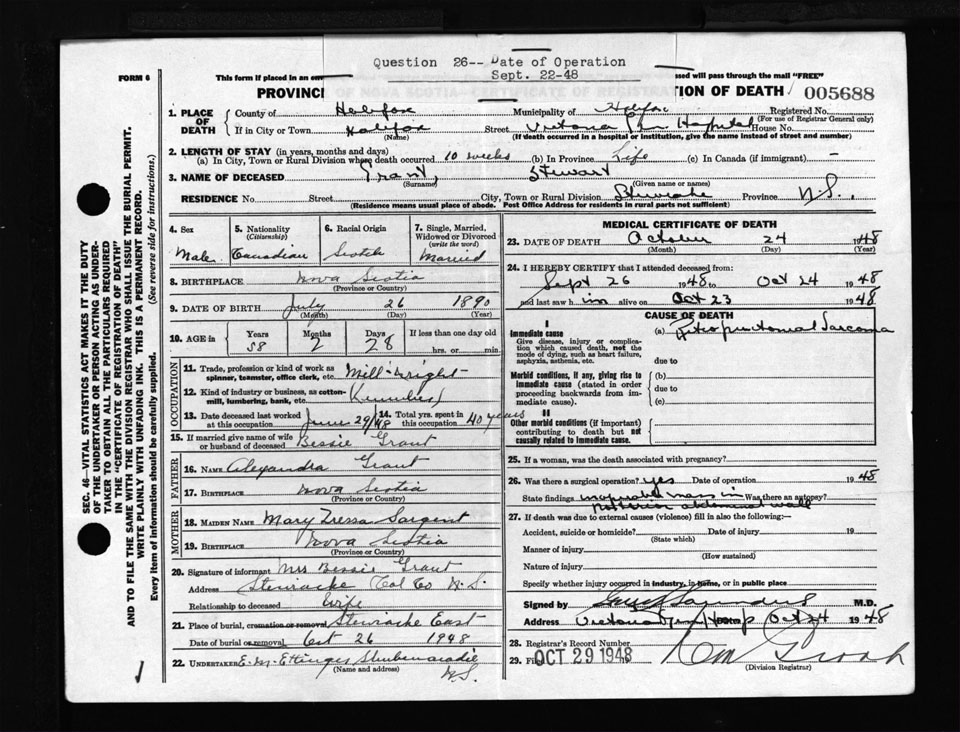 Question 26-- Date of Operation
Sept. 22-48
FORM 6
This form if placed in an env
sed will pass through the mail "FREE"
PROVINCI
TION OF DEATH
005688
1. PLACE OF DEATH
County of Halifax
Municipality of Halifax
Registered No.
(For use of Registrar General only)
If in City or Town Halifax
(Name)
Street Victoria Gen Hospital House No.
(If death occurred in a hospital or institution, give the name instead of street and number)
2. LENGTH OF STAY (in years, months and days)
(a) In City, Town or Rural Division where death occurred 10 weeks (b) In Province Life (c) In Canada (if immigrant) -
3. NAME OF DECEASED Grant, Stewart
(Surname) (Given name or names)
RESIDENCE No. Street City, Town or Rural Division Stewiacke Province N.S.
(Residence means usual place of abode. Post Office Address for residents in rural parts not sufficient)
4. Sex
Male
5. Nationality
(Citizenship)
Canadian
6. Racial Origin
Scotch
7. Single, Married, Widowed or Divorced
(write the word)
Married
8. BIRTHPLACE Nova Scotia
(Province or Country)
9. DATE OF BIRTH July 26 1890
(Month) (Day) (Year)
10. AGE in
Years 58
Months 2
Days 28
If less than one day old
hrs. or min.
OCCUPATION
11. Trade, profession or kind of work as
spinner, teamster, office clerk, etc. Mill-wright
12. Kind of industry or business, as cotton-
mill, lumbering, bank, etc.
13. Date deceased last worked
at this occupation June 29/48
14. Total yrs. spent in
this occupation 40 years
15. If married give name of wife
or husband of deceased Bessie Grant
FATHER
16. NAME Alexandra Grant
17. BIRTHPLACE Nova Scotia
(Province or Country)
MOTHER
18. MAIDEN NAME Mary Sargent
19. BIRTHPLACE Nova Scotia
(Province or Country)
20. Signature of informant Mrs Bessie Grant
Address Stewiacke Col Co N.S.
Relationship to deceased Wife
21. Place of burial, cremation or removal Stewiacke East
Date of burial or removal Oct 26 1948
22. UNDERTAKER E. M. Ettinger Shubenacadie
(Name and address) N.S.
MEDICAL CERTIFICATE OF DEATH
23. DATE OF DEATH October 24 1948
(Month) (Day) (Year)
24. I HEREBY CERTIFY that I attended deceased from
Sept 26 1948 to Oct 24 1948
and last saw him alive on Oct 23 1948
CAUSE OF DEATH
I
Immediate cause
Give disease, injury or complication which caused death, not the mode of dying, such as heart failure, asphyxia, asthenia, etc.
(a) Retroperitoneal Sarcoma
due to
Morbid conditions, if any, giving rise to immediate cause (stated in order proceeding backwards from immediate cause).
(b)
due to
(c)
II
Other morbid conditions (if important) contributing to death but not causally related to immediate cause.
25. If a woman, was the death associated with pregnancy?
26. Was there a surgical operation? yes Date of operation 1948
State findings inoperable mass in Was there an autopsy?
posterior abdominal wall
27. If death was due to external causes (violence) fill in also the following:-
Accident, suicide or homicide? Date of injury 19
(State which)
Manner of injury
(How sustained)
Nature of injury
Specify whether injury occurred in industry, in home, or in public place
Signed by Saunders M.D.
Address Victoria Gen Hosp Oct 24 1948
28. Registrar's Record Number
29. Fi
OCT 29 1948
(Division Registrar)
SEC. 46—VITAL STATISTICS ACT MAKES IT THE DUTY
OF THE UNDERTAKER OR PERSON ACTING AS UNDER-
TAKER TO OBTAIN ALL THE PARTICULARS REQUIRED
IN THE "CERTIFICATE OF REGISTRATION OF DEATH"
AND TO FILE THE SAME WITH THE DIVISION REGISTRAR WHO SHALL ISSUE THE BURIAL PERMIT.
WRITE PLAINLY WITH UNFADING INK. THIS IS A PERMANENT RECORD.
Every item of information should be carefully supplied. (See reverse side for instructions.)